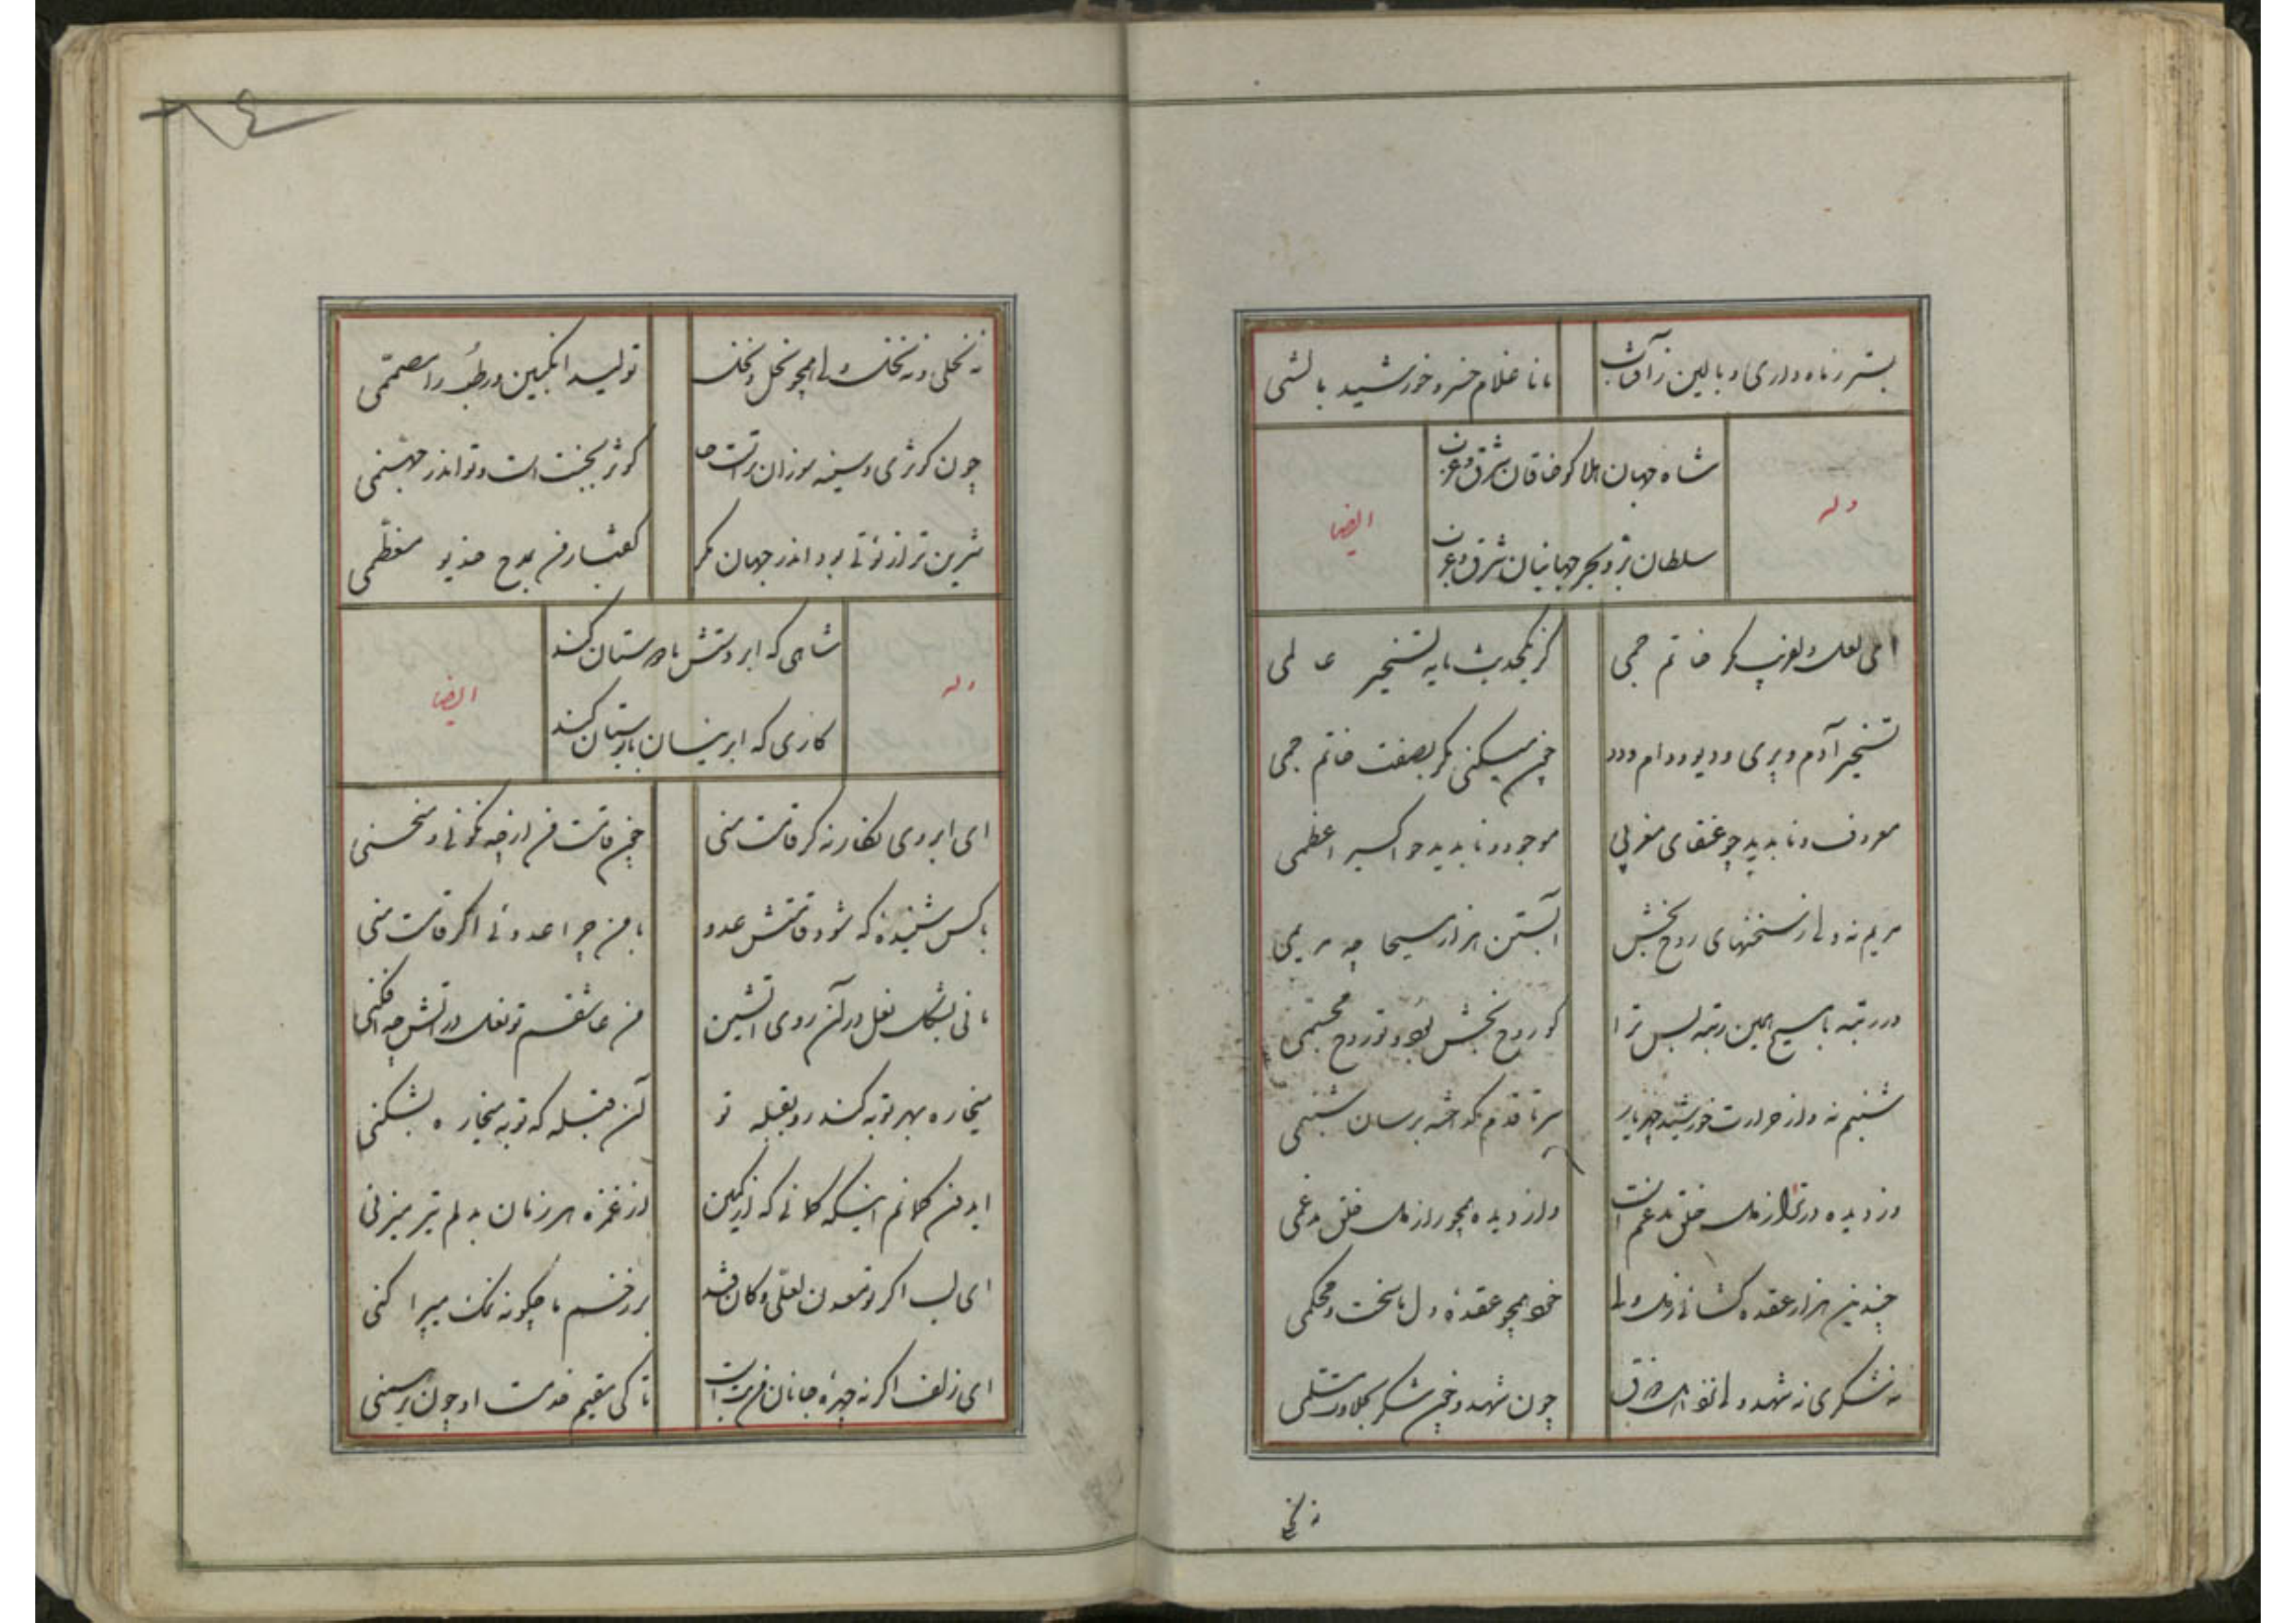 بستر ز ماه داری و بالین ز آفتاب
مانا غلام خسرو خورشید بالشی
شاه جهان هلاکو خاقان شرق و غرب
سلطان بر و بحر جهانبان شرق و غرب
وله
ایضا
ای لعل دلفریب مگر خاتم جمی
کز یکحدیث مایه تسخیر عالمی
تسخیر آدم و پری و دیو و دام و دد
چون میکنی مگر بصفت خاتم جمی
معروف و ناپدید چو عنقای مغربی
موجود و ناپدید چو اکسیر اعظمی
مریم نه و لی از سخنهای روح بخش
آبستن هزار مسیحا چه مریمی
در رتبه با مسیح همین رتبه بس ترا
کو روح بخش بود و تو روح مجسمی
شبنم نه و از حرارت خورشید چهر یار
سر تا قدم گداخته برسان شبنمی
دزدیده در تو راز دل خلق مدغم است
و از دیده همچو راز دل خلق مدغمی
چندین هزار عقده گشائی ز دل ولی
خود همچو عقدهٔ دل ما سخت و محکمی
نه شکری نه شهد و لی
چون شهد و چون شکر بحلاوت مسلمی
نه نخلی
نه نخلی و نه نخل ولی همچو نخل و نخل
تولید انگبین و رطب را مصممی
چون کوثری و سینه سوزان تراست جا
کوثر بجنت است و تو اندر جهنمی
شیرین تر از تو نی بود اندر جهان مگر
گفتار من بمدح خدیو معظمی
شاهی که ابر دستش با دوستان کند
کاری که ابر نیسان با بوستان کند
وله
ایضا
ای ابروی نگار نه گر قامت منی
چون قامت من از چه نگونی و منحنی
با کس شنیدهٔ که شود قامتش عدو
با من چرا عدوئی اگر قامت منی
مانی بشکل نعل در آن روی آتشین
من عاشقم تو نعل در آتش چه افکنی
میخاره بهر توبه کند رو بقبله تو
آن قبله که توبه میخاره بشکنی
ابروی کمانم اینکه کمانی که از کمین
از غمزه هر زمان بدلم تیر میزنی
ای لب اگر تو معدن لعلی و کان قند
بر زخم ما چگونه نمک میپراکنی
ای زلف اگر نه چهرهٔ جانان
تا کی مقیم خدمت او چون برهمنی